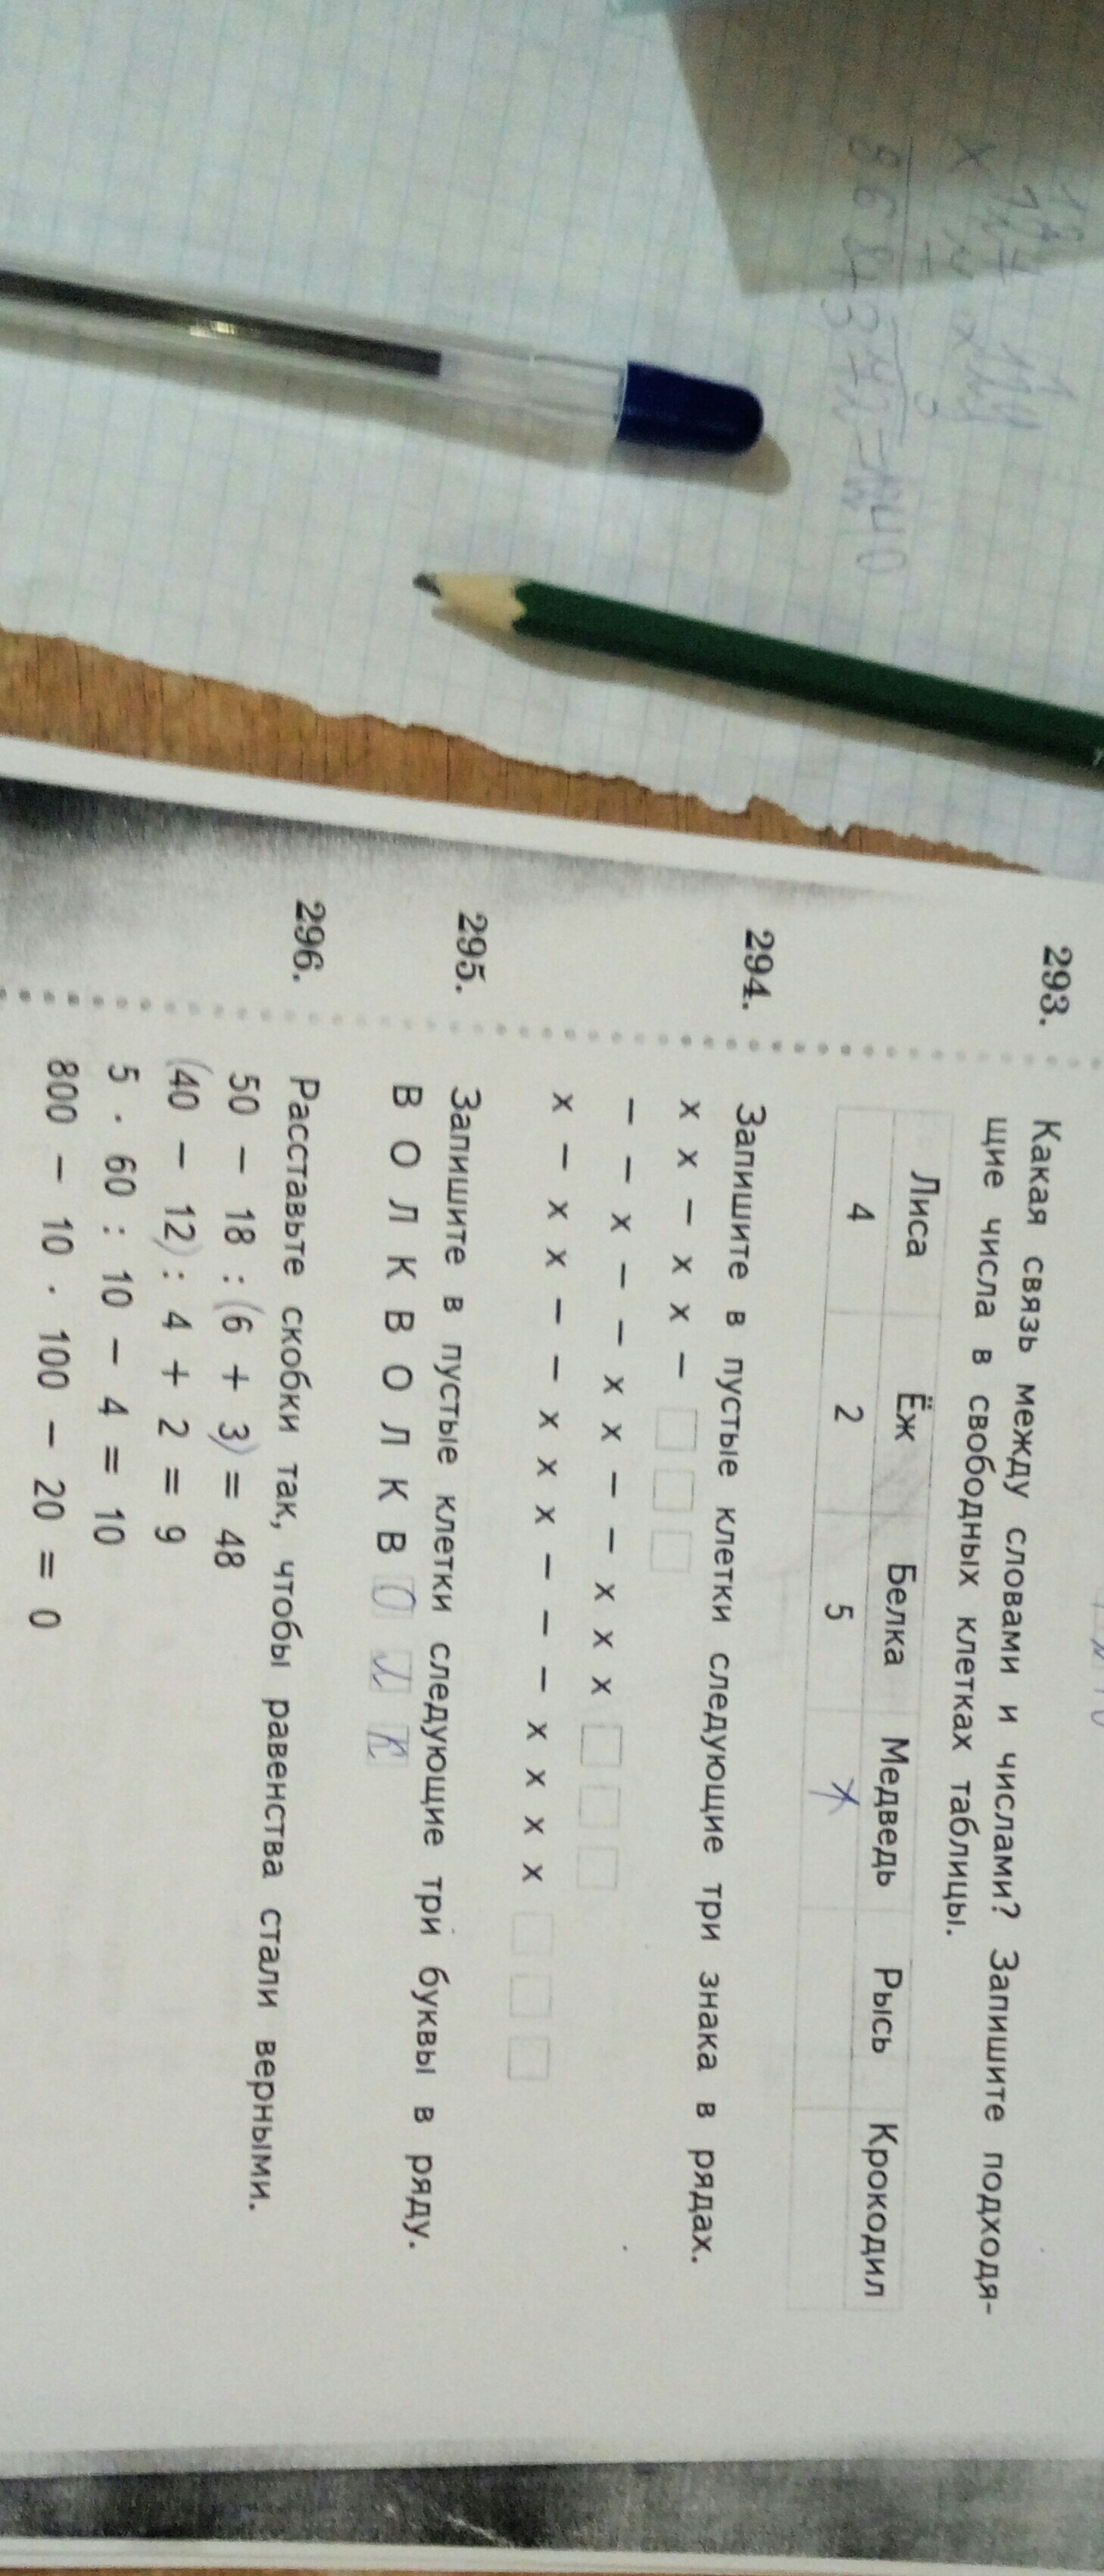 293. Какая связь между словами и числами? Запишите подходя-
щие числа в свободных клетках таблицы.
Лиса Ёж Белка Медведь Рысь Крокодил
4 2 5 7
294. Запишите в пустые клетки следующие три знака в рядах.
х х – х х –
– – х – – х х – – х х х
х – х х – – х х х – – – х х х х
295. Запишите в пустые клетки следующие три буквы в ряду.
В О Л К В О Л К В О Л К
296. Расставьте скобки так, чтобы равенства стали верными.
50 – 18 : (6 + 3) = 48
(40 – 12) : 4 + 2 = 9
5 · 60 : 10 – 4 = 10
800 – 10 · 100 – 20 = 0